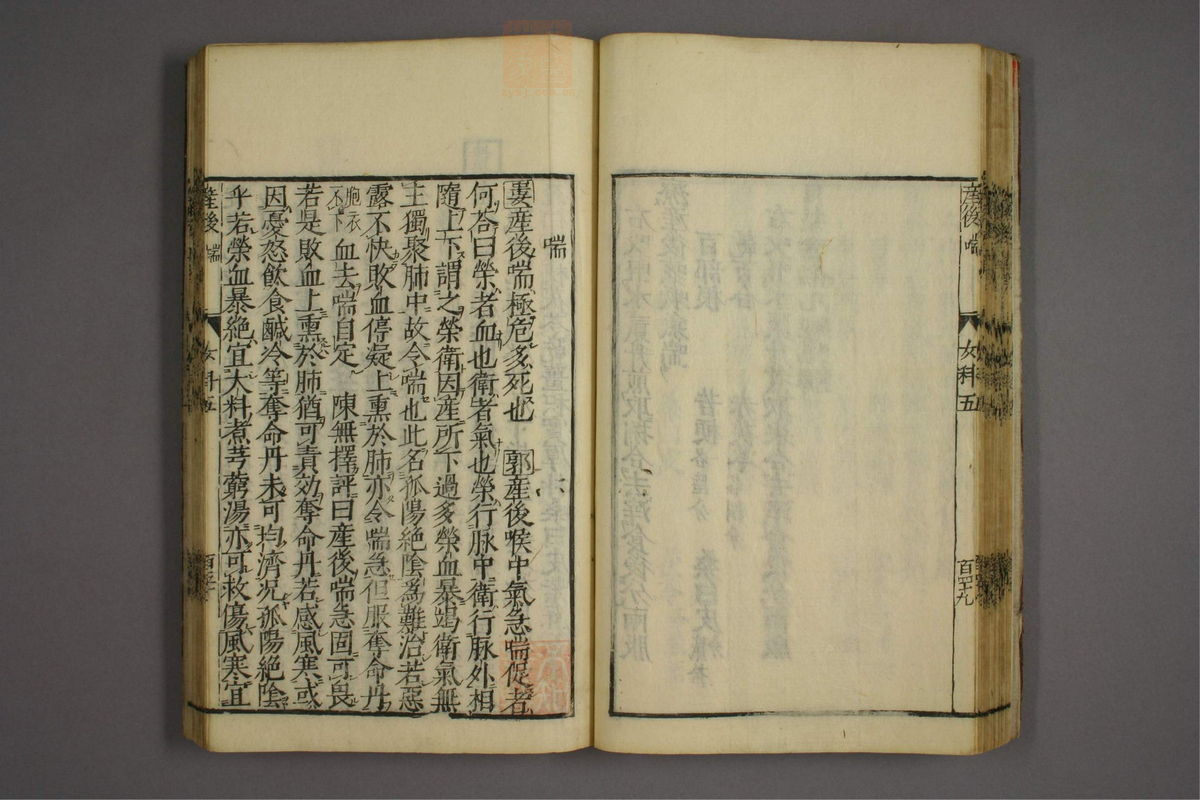 産後 喘
女科五
百四十九
喘
婁産後喘極危多死也 郭産後喉中氣急喘促者
何荅曰榮者血也衛者氣也榮行脉中衛行脉外相
隨上下謂之榮衛因産所下過多榮血暴竭衛氣無
主獨聚肺中故令喘也此名孤陽絶陰爲難治若惡
露不快敗血停凝上熏於肺亦令喘急但服奪命丹
胞衣不下 血去喘自定 陳無擇評曰産後喘急固可畏
若是敗血上熏於肺猶可責効奪命丹若感風寒或
因憂怒飲食鹹冷等奪命丹未可均濟况孤陽絶陰
乎若榮血暴絶宜大料煮芎藭湯亦可救傷風寒宜
産後 喘
女科五